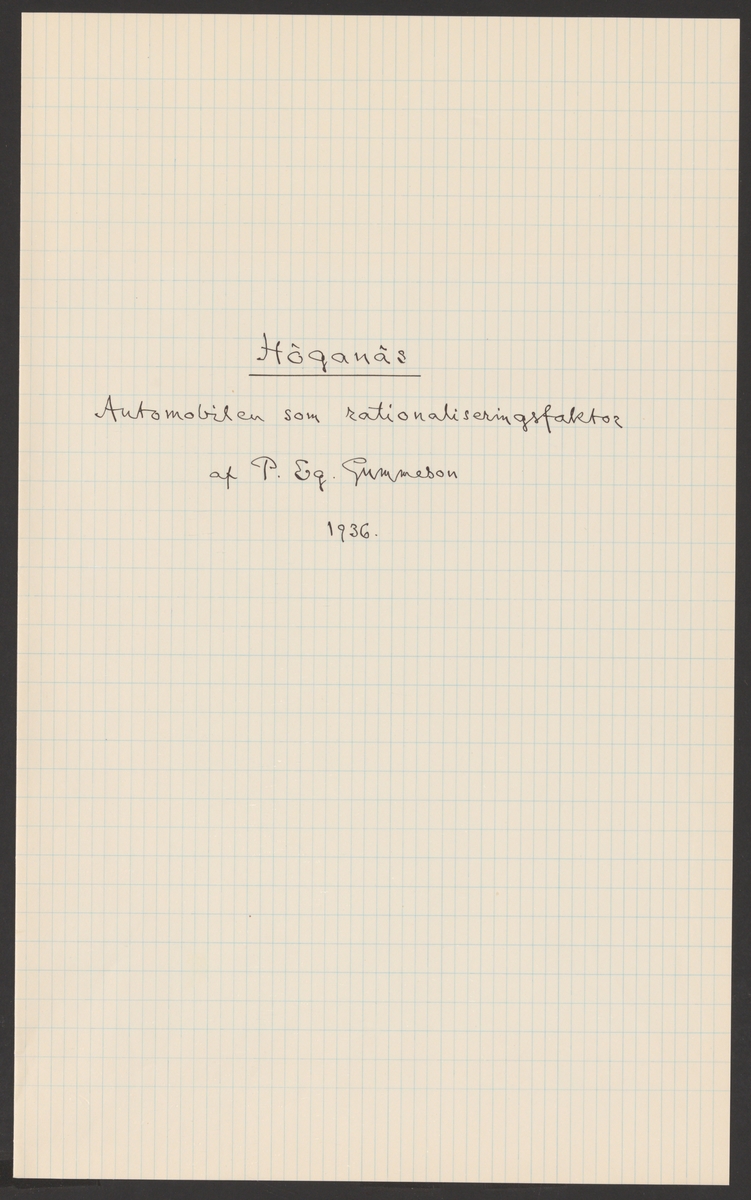 Höganäs
Automobilen som rationaliseringsfaktor
af P. Eg. Gummeson
1936.